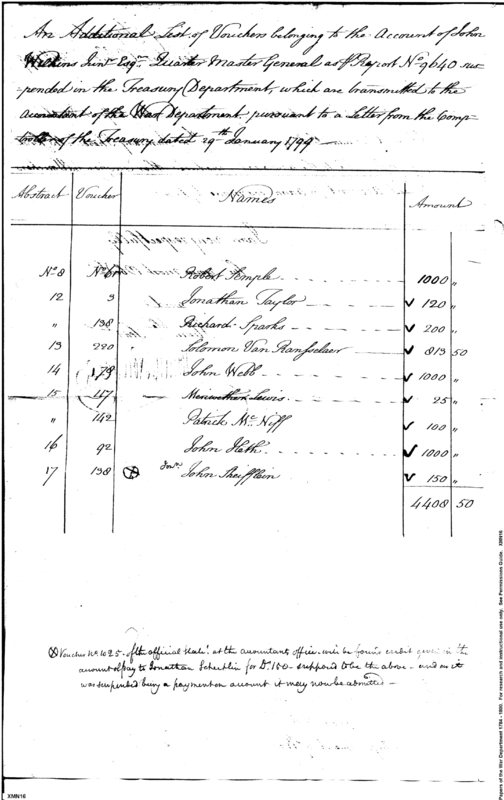 An Additional List of Vouchers belonging to the Account of John
Wilkins Junr. Esqr. Quarter Master General as pr Report No. 9640 sus-
pended in the Treasury Department, which are transmitted to the
accountant of the War Department pursuant to a Letter from the Comp-
troller of the Treasury dated 29th January 1799
Abstract Voucher Names Amount
No 8 No Robert Semple 1000 "
12 3 Jonathan Taylor ✓ 120 "
" 138 Richard Sparks ✓ 200 "
13 220 Solomon Van Ransselaer ✓ 813 50
14 179 John Webb ✓ 1000 "
15 147 Meriwether Lewis ✓ 25 "
" 142 Patrick Mc Niff ✓ 100 "
16 92 John Heth ✓ 1000 "
17 138 ⊗ John ✓ 150 "
4408 50
⊗ Voucher No. 1025 - of the official at the accountants office - will be found credit given in the
amount of pay to Jonathan for Ds. 150 - supposed to be the above - and as it
was suspended being a payment on account it may now be admitted -
XMN16
Papers of the War Department 1784 - 1800. For research and instructional use only. See Permissions Guide. XMN16